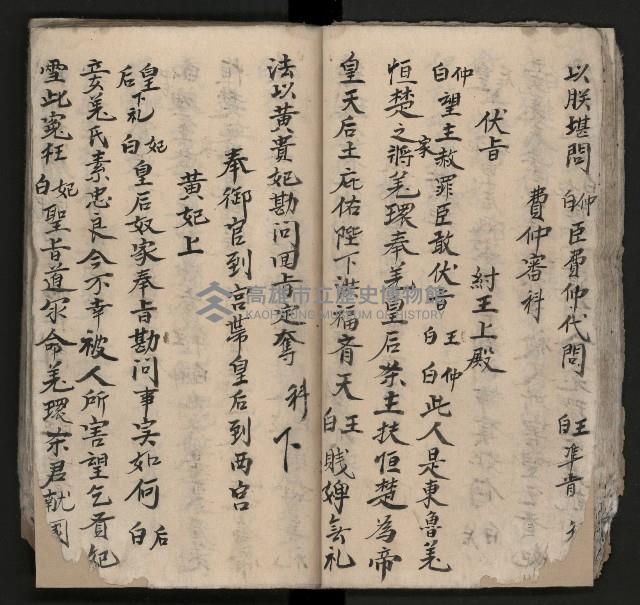 以朕堪問 仲白 臣費仲代問 王白 準旨
費仲審科
伏旨 紂王上殿
仲白 望主赦罪臣敢伏旨 王白 仲白 此人是東魯羗
家恒楚之將羗環奉羗皇后弒主扶恒楚為帝
皇天后土庇佑陛下洪福齊天 王白 賤婢無礼
法以黃貴妃勘問回旨定奪 科下
奉御官到宮帶皇后到西宮
黃妃上
皇后下礼 妃白 皇后奴家奉旨勘問事实如何 后白
妾羗氏素忠良今不幸被人所害望乞貴妃
雪此寃枉 妃白 聖旨道你命羗環弒君献國
高雄市立歷史博物館
KAOHSIUNG MUSEUM OF HISTORY